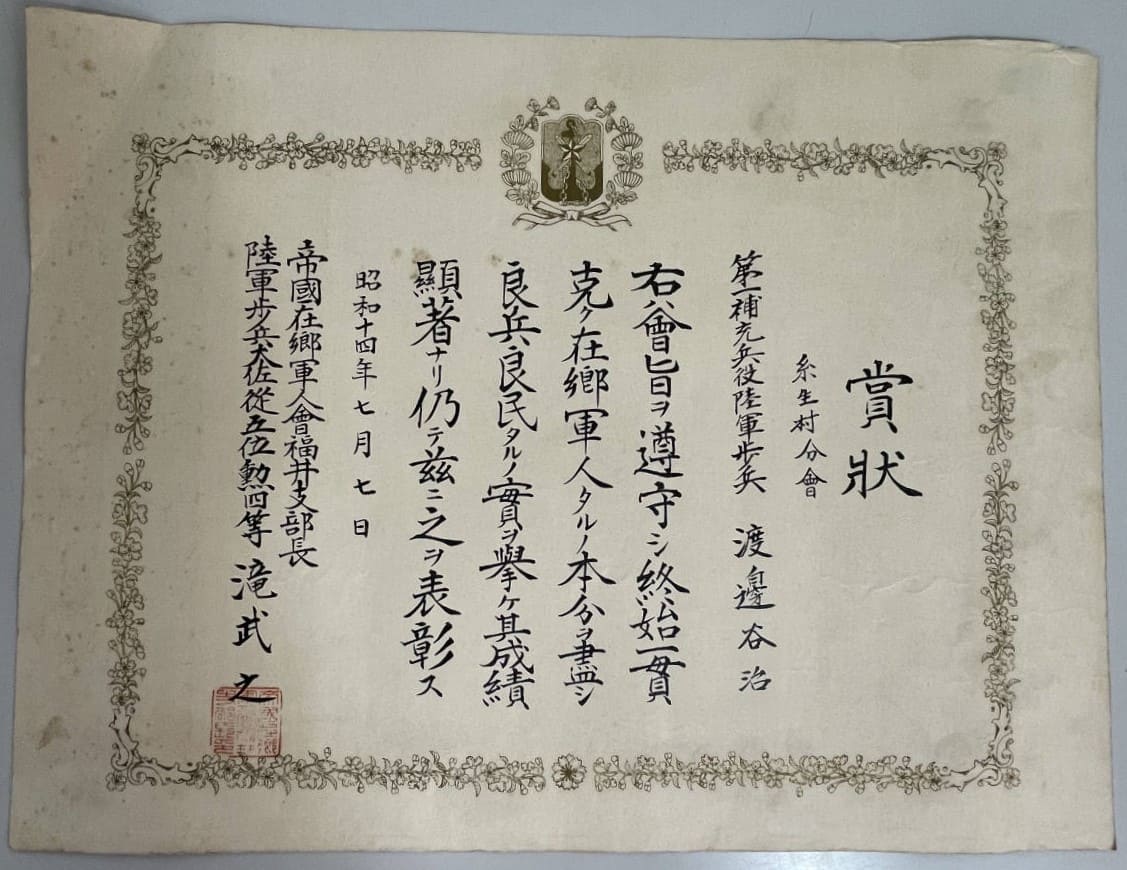 賞狀
糸生村分會
第一補充兵役陸軍歩兵 渡邊谷治
右ハ會旨ヲ遵守シ終始一貫
克ク在鄕軍人タルノ本分ヲ盡シ
良兵良民タルノ實ヲ擧ケ其成績
顯著ナリ仍テ茲ニ之ヲ表彰ス
昭和十四年七月七日
帝國在鄕軍人會福井支部長
陸軍歩兵大佐從五位勲四等 滝武之